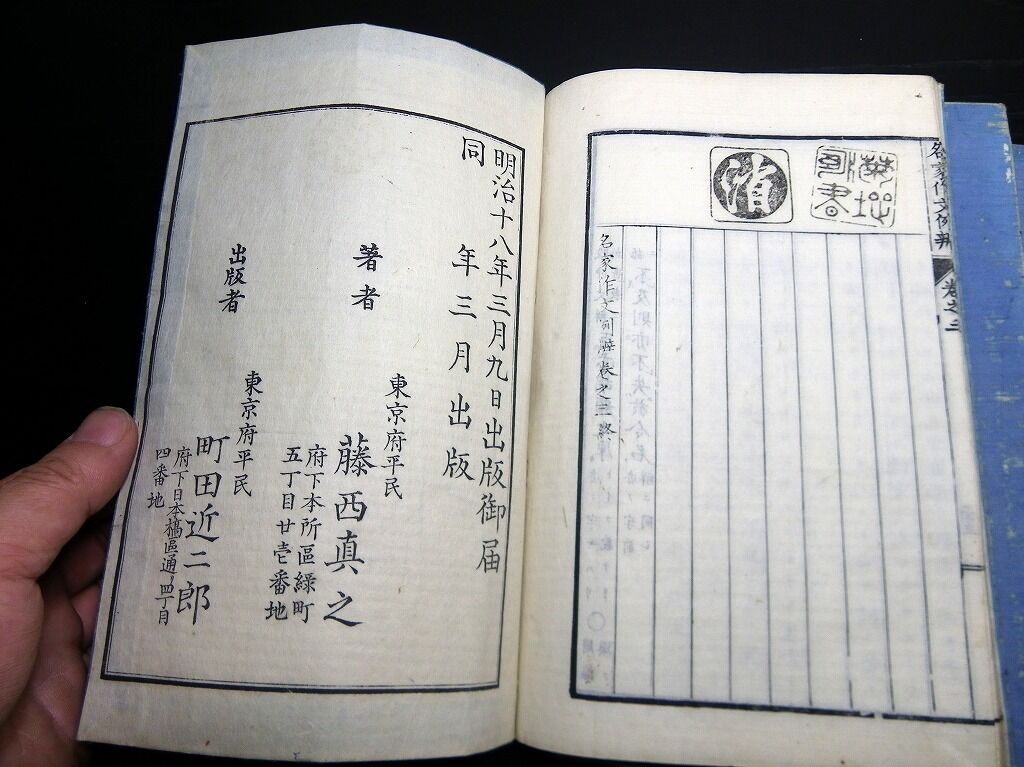 名家作文例辨
卷之三
名家作文例辨卷之三終
明治十八年三月九日出版御届
同年三月出版
著者
東京府平民
藤西真之
府下本所區緑町
五丁目廿壱番地
出版者
東京府平民
町田近二郎
府下日本橋區通ノ四丁目
四番地